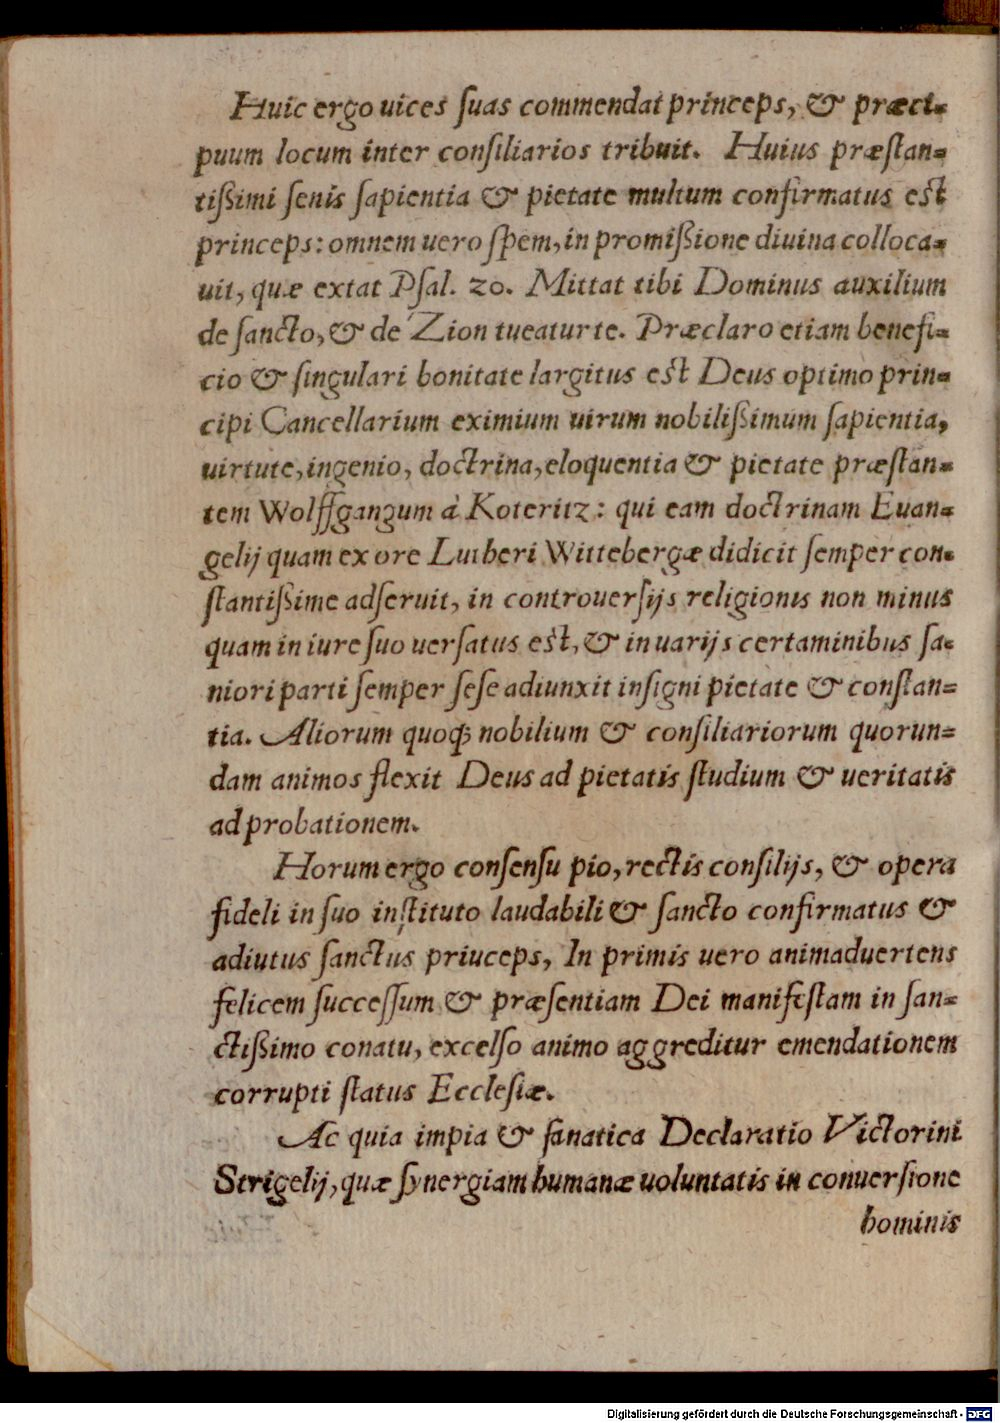 Huic ergo uices ſuas commendat princeps, & præci-
puum locum inter conſiliarios tribuit. Huius præſtan-
tißimi ſenis ſapientia & pietate multum confirmatus eſt
princeps: omnem uero ſpem, in promißione diuina colloca-
uit, quæ extat Pſal. 20. Mittat tibi Dominus auxilium
de ſancto, & de Zion tueatur te. Præclaro etiam benefi-
cio & ſingulari bonitate largitus eſt Deus optimo prin-
cipi Cancellarium eximium uirum nobilißimum ſapientia,
uirtute, ingenio, doctrina, eloquentia & pietate præſtan-
tem Wolffgangum à Koteritz: qui eam doctrinam Euan-
gelij quam ex ore Lutheri Wittebergæ didicit ſemper con-
ſtantißime adſeruit, in controuerſijs religionis non minus
quam in iure ſuo uerſatus eſt, & in uarijs certaminibus ſa-
niori parti ſemper ſeſe adiunxit inſigni pietate & conſtan-
tia. Aliorum quoq; nobilium & conſiliariorum quorun-
dam animos flexit Deus ad pietatis ſtudium & ueritatis
adprobationem.
Horum ergo conſenſu pio, rectis conſilijs, & opera
fideli in ſuo inſtituto laudabili & ſancto confirmatus &
adiutus ſanctus priuceps, In primis uero animaduertens
felicem ſucceſſum & præſentiam Dei manifeſtam in ſan-
ctißimo conatu, excelſo animo aggreditur emendationem
corrupti ſtatus Eccleſiæ.
Ac quia impia & fanatica Declaratio Victorini
Strigelij, quæ ſynergiam humanæ uoluntatis in conuerſione
hominis
Digitalisierung gefördert durch die Deutsche Forschungsgemeinschaft - DFG